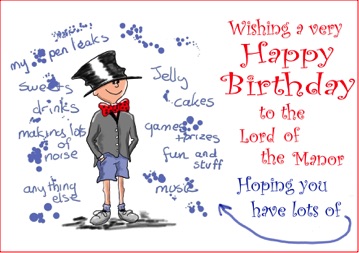 Wishing a very
Happy
Birthday
to the
Lord of
the Manor
Hoping you
have lots of
my pen leaks
sweets
drinks
making lots
of
noise
anything
else
Jelly
cakes
games
+ prizes
fun and
stuff
music